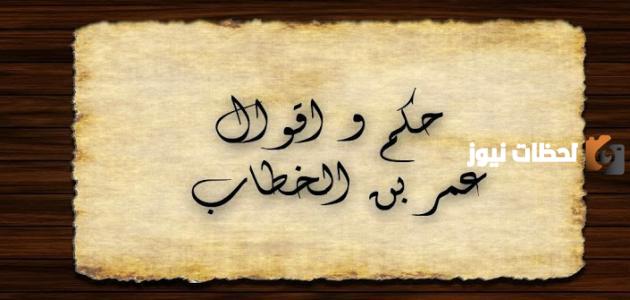 حكم و اقوال
لحظات نيوز
عمر بن الخطاب